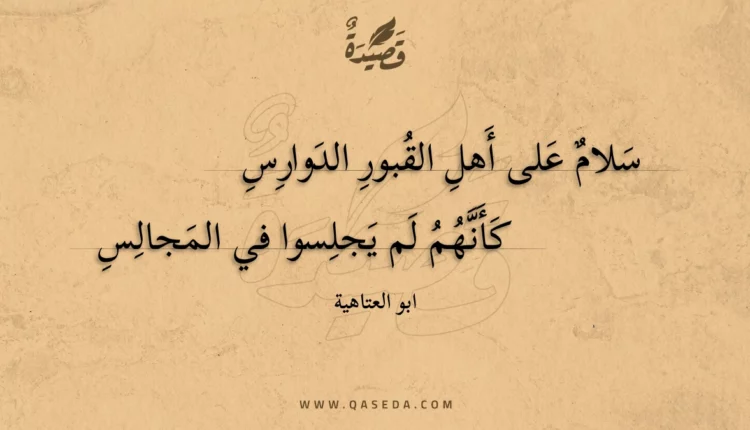 قَصِيدَةٌ
سَلامٌ عَلى أَهلِ القُبورِ الدَوارِسِ
كَأَنَّهُمُ لَم يَجلِسوا في المَجالِسِ
ابو العتاهية
WWW.QASEDA.COM